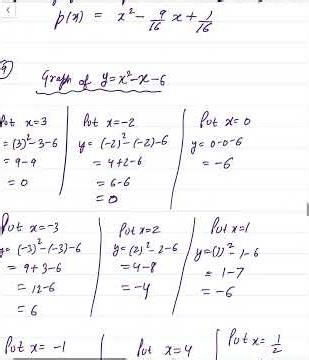 p(x) = x² - 9/16 x + 1/16
Graph of y=x²-x-6
Put x=3
= (3)²-3-6
= 9-9
= 0
Put x=-2
y= (-2)²-(-2)-6
= 4+2-6
= 6-6
= 0
Put x=0
y= 0-0-6
= -6
Put x=-3
y= (-3)²-(-3)-6
= 9+3-6
= 12-6
= 6
Put x=2
y= (2)²-2-6
= 4-8
= -4
Put x=1
y=(1)²-1-6
= 1-7
= -6
Put x= -1
Put x=4
Put x= 1/2